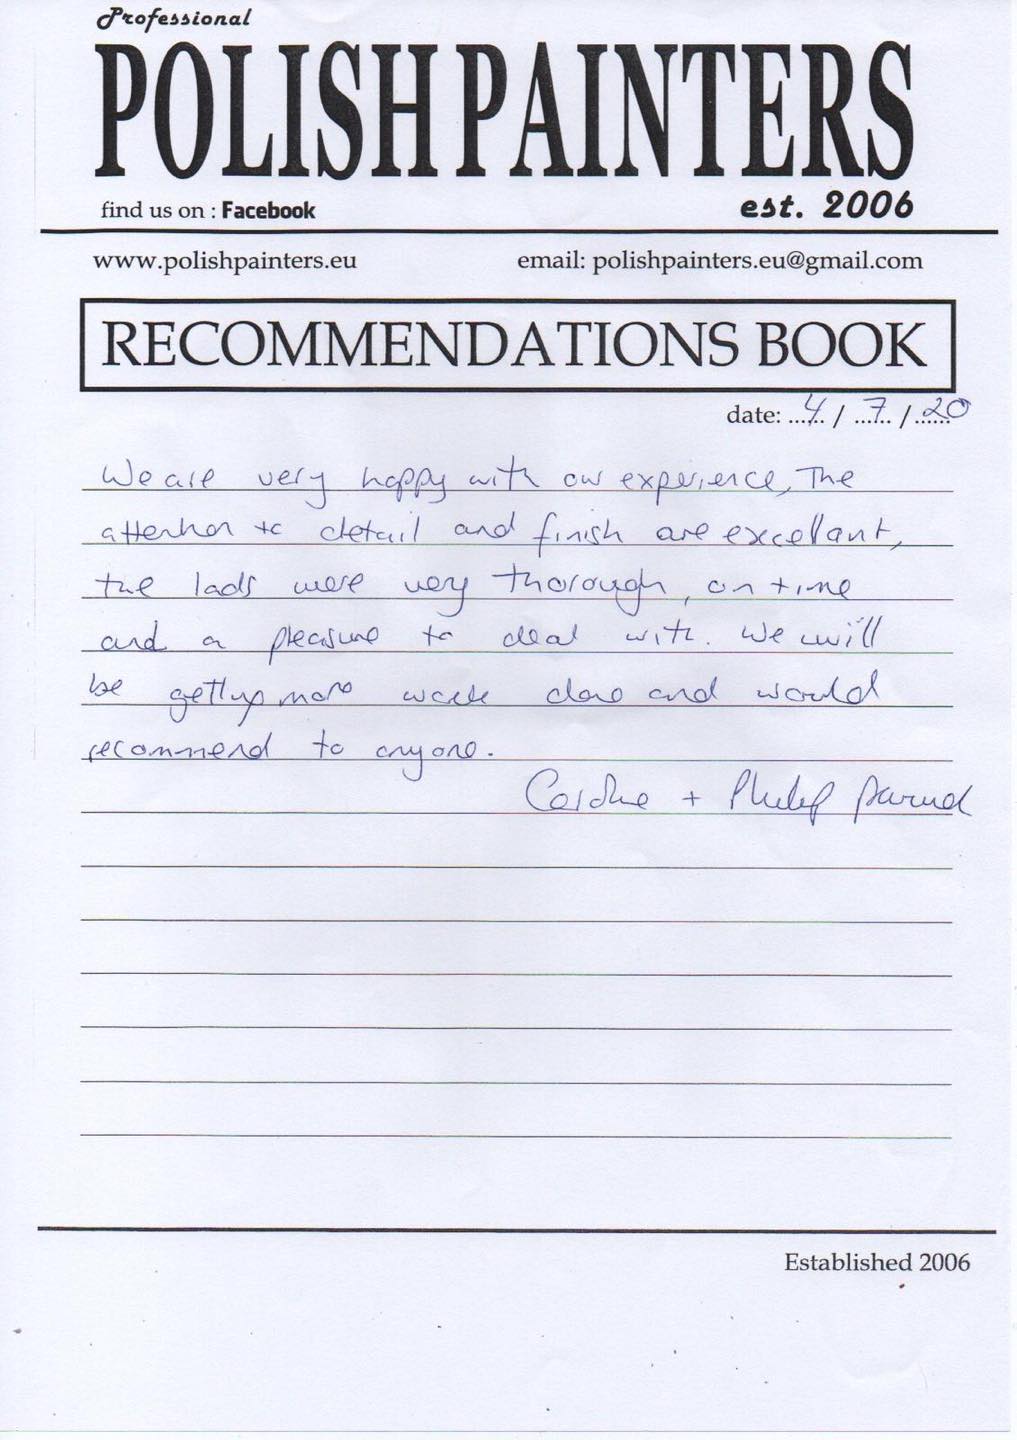 Professional
POLISH PAINTERS
find us on : Facebook
est. 2006
www.polishpainters.eu
email: polishpainters.eu@gmail.com
RECOMMENDATIONS BOOK
date: 4 / 7 / 20
We are very happy with our experience, The
attention to detail and finish are excellant,
the lads were very thorough, on time
and a pleasure to deal with. We will
be getting more work done and would
recommend to anyone.
+ Philip
Established 2006